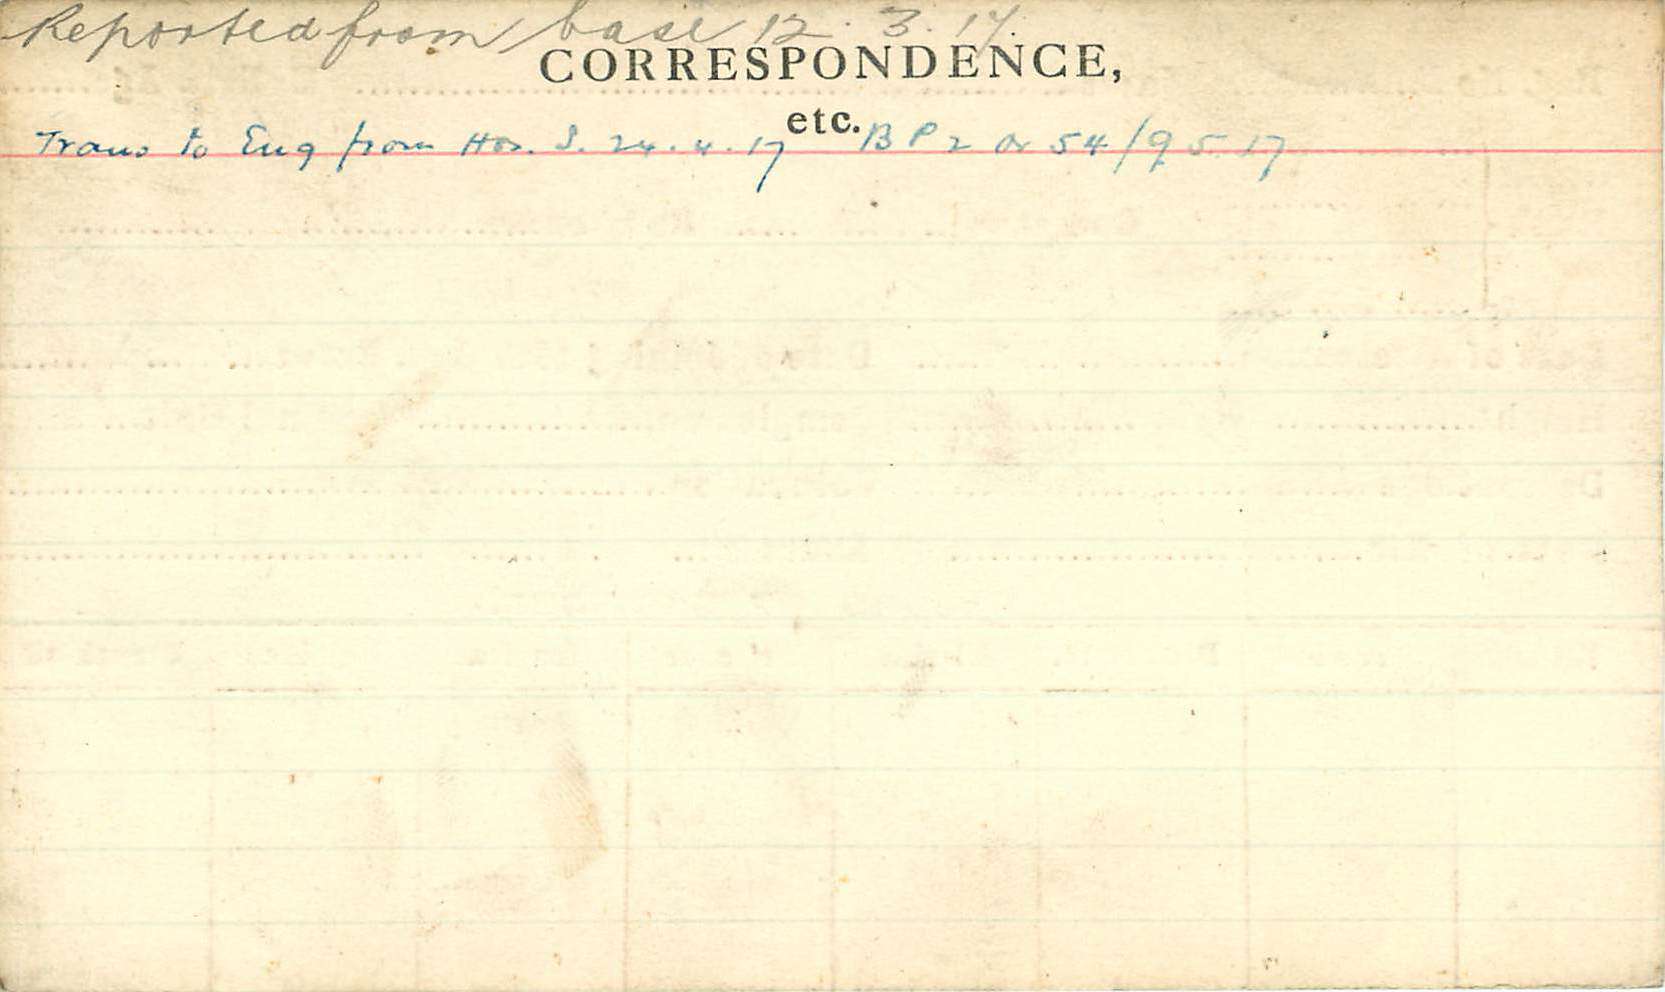 Reported from base 12. 3. 17.
CORRESPONDENCE,
etc.
Trans to Eng from Hos. S. 24. 4. 17 B P 2 Or 54/9 5 17